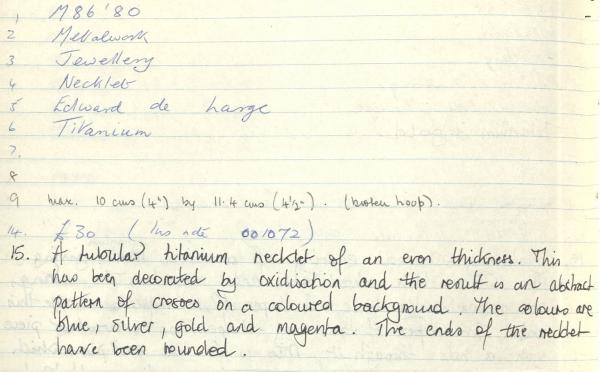 1 M86'80
2 Metalwork
3 Jewellery
4 Necklet
5 Edward de Large
6 Titanium
7.
8
9 max. 10 cms (4") by 11.4 cms (4½"). (broken hoop).
14. £30 (Ins note 001072)
15. A tubular titanium necklet of an even thickness. This
has been decorated by oxidisation and the result is an abstract
pattern of crosses on a coloured background. The colours are
blue, silver, gold and magenta. The ends of the necklet
have been rounded.